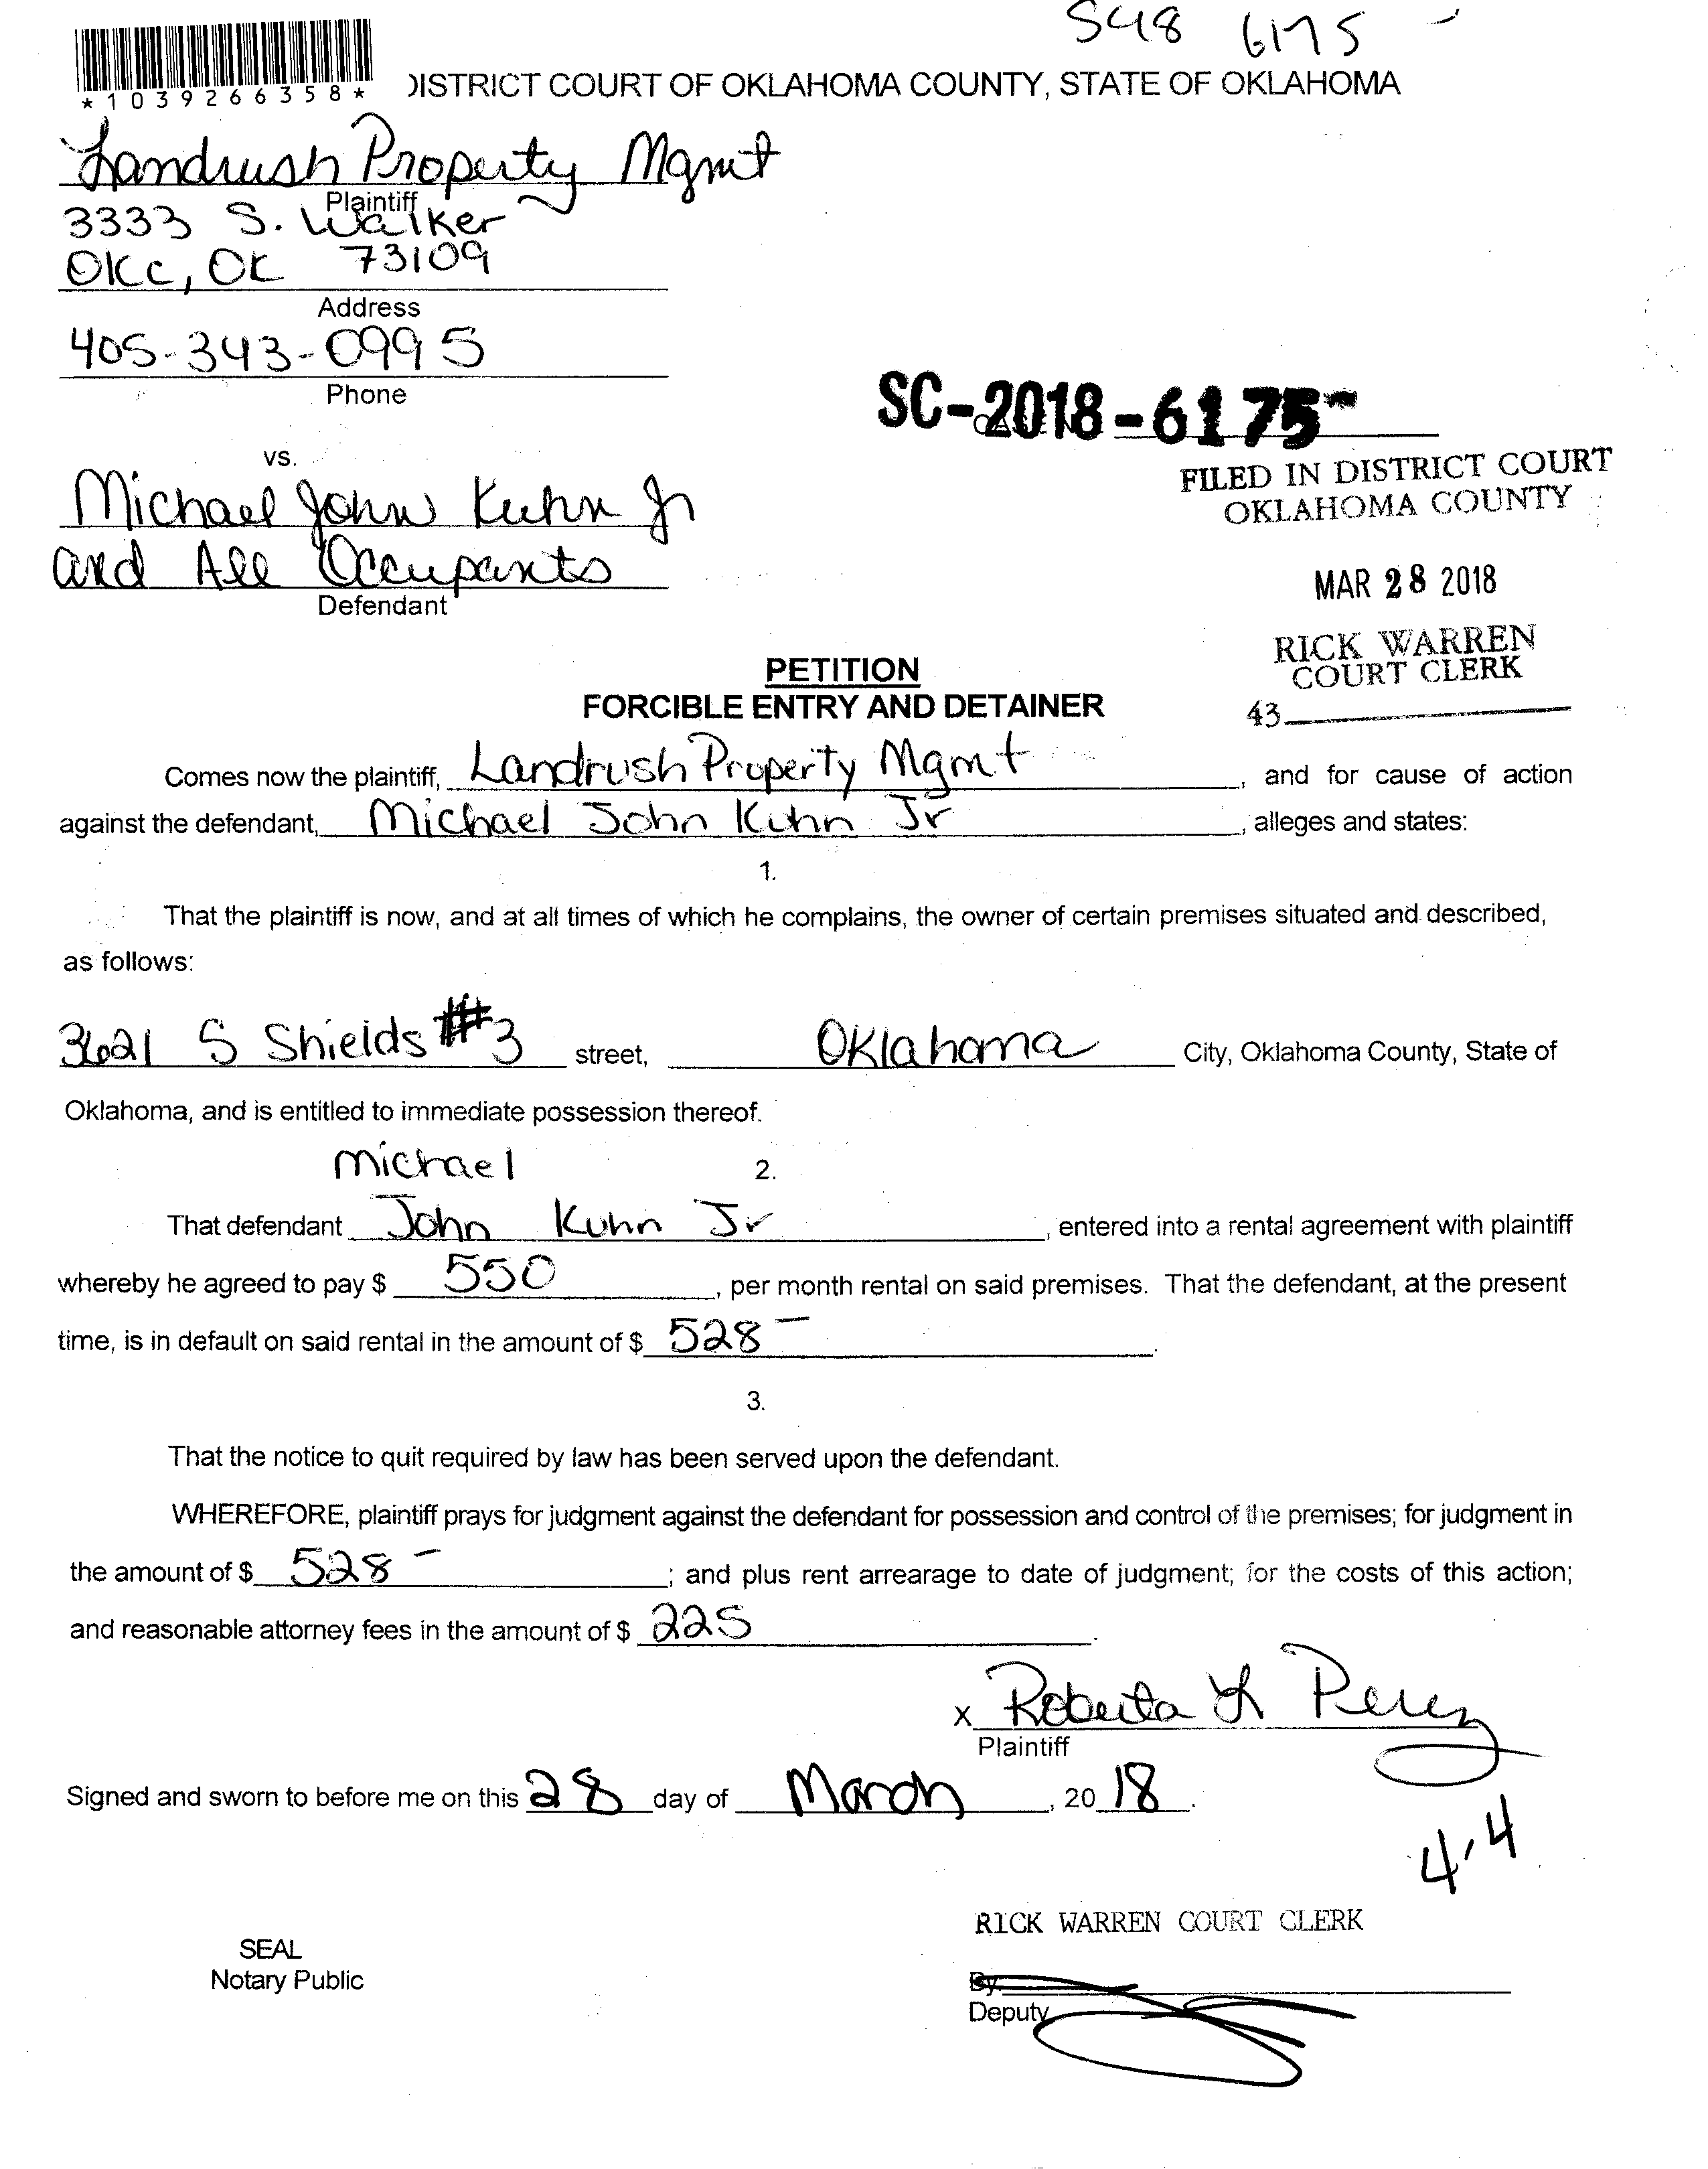 S48 6175 -
*1039266358*
DISTRICT COURT OF OKLAHOMA COUNTY, STATE OF OKLAHOMA
Landrush Property Mgmt
Plaintiff
3333 S. Walker
OKC, OK 73109
Address
405-343-0995
Phone
SC-2018-6175-
vs.
FILED IN DISTRICT COURT
OKLAHOMA COUNTY
Michael John Kuhn Jr
and All Occupants
Defendant
MAR 28 2018
RICK WARREN
COURT CLERK
43
PETITION
FORCIBLE ENTRY AND DETAINER
Comes now the plaintiff, Landrush Property Mgmt, and for cause of action
against the defendant, Michael John Kuhn Jr, alleges and states:
1.
That the plaintiff is now, and at all times of which he complains, the owner of certain premises situated and described,
as follows:
3621 S Shields #3 street, Oklahoma City, Oklahoma County, State of
Oklahoma, and is entitled to immediate possession thereof.
Michael
2.
That defendant John Kuhn Jr, entered into a rental agreement with plaintiff
whereby he agreed to pay $ 550, per month rental on said premises. That the defendant, at the present
time, is in default on said rental in the amount of $ 528-.
3.
That the notice to quit required by law has been served upon the defendant.
WHEREFORE, plaintiff prays for judgment against the defendant for possession and control of the premises; for judgment in
the amount of $ 528-; and plus rent arrearage to date of judgment; for the costs of this action;
and reasonable attorney fees in the amount of $ 225.
x Roberta L Perez
Plaintiff
Signed and sworn to before me on this 28 day of March, 20 18.
4-4
RICK WARREN COURT CLERK
SEAL
Notary Public
By
Deputy